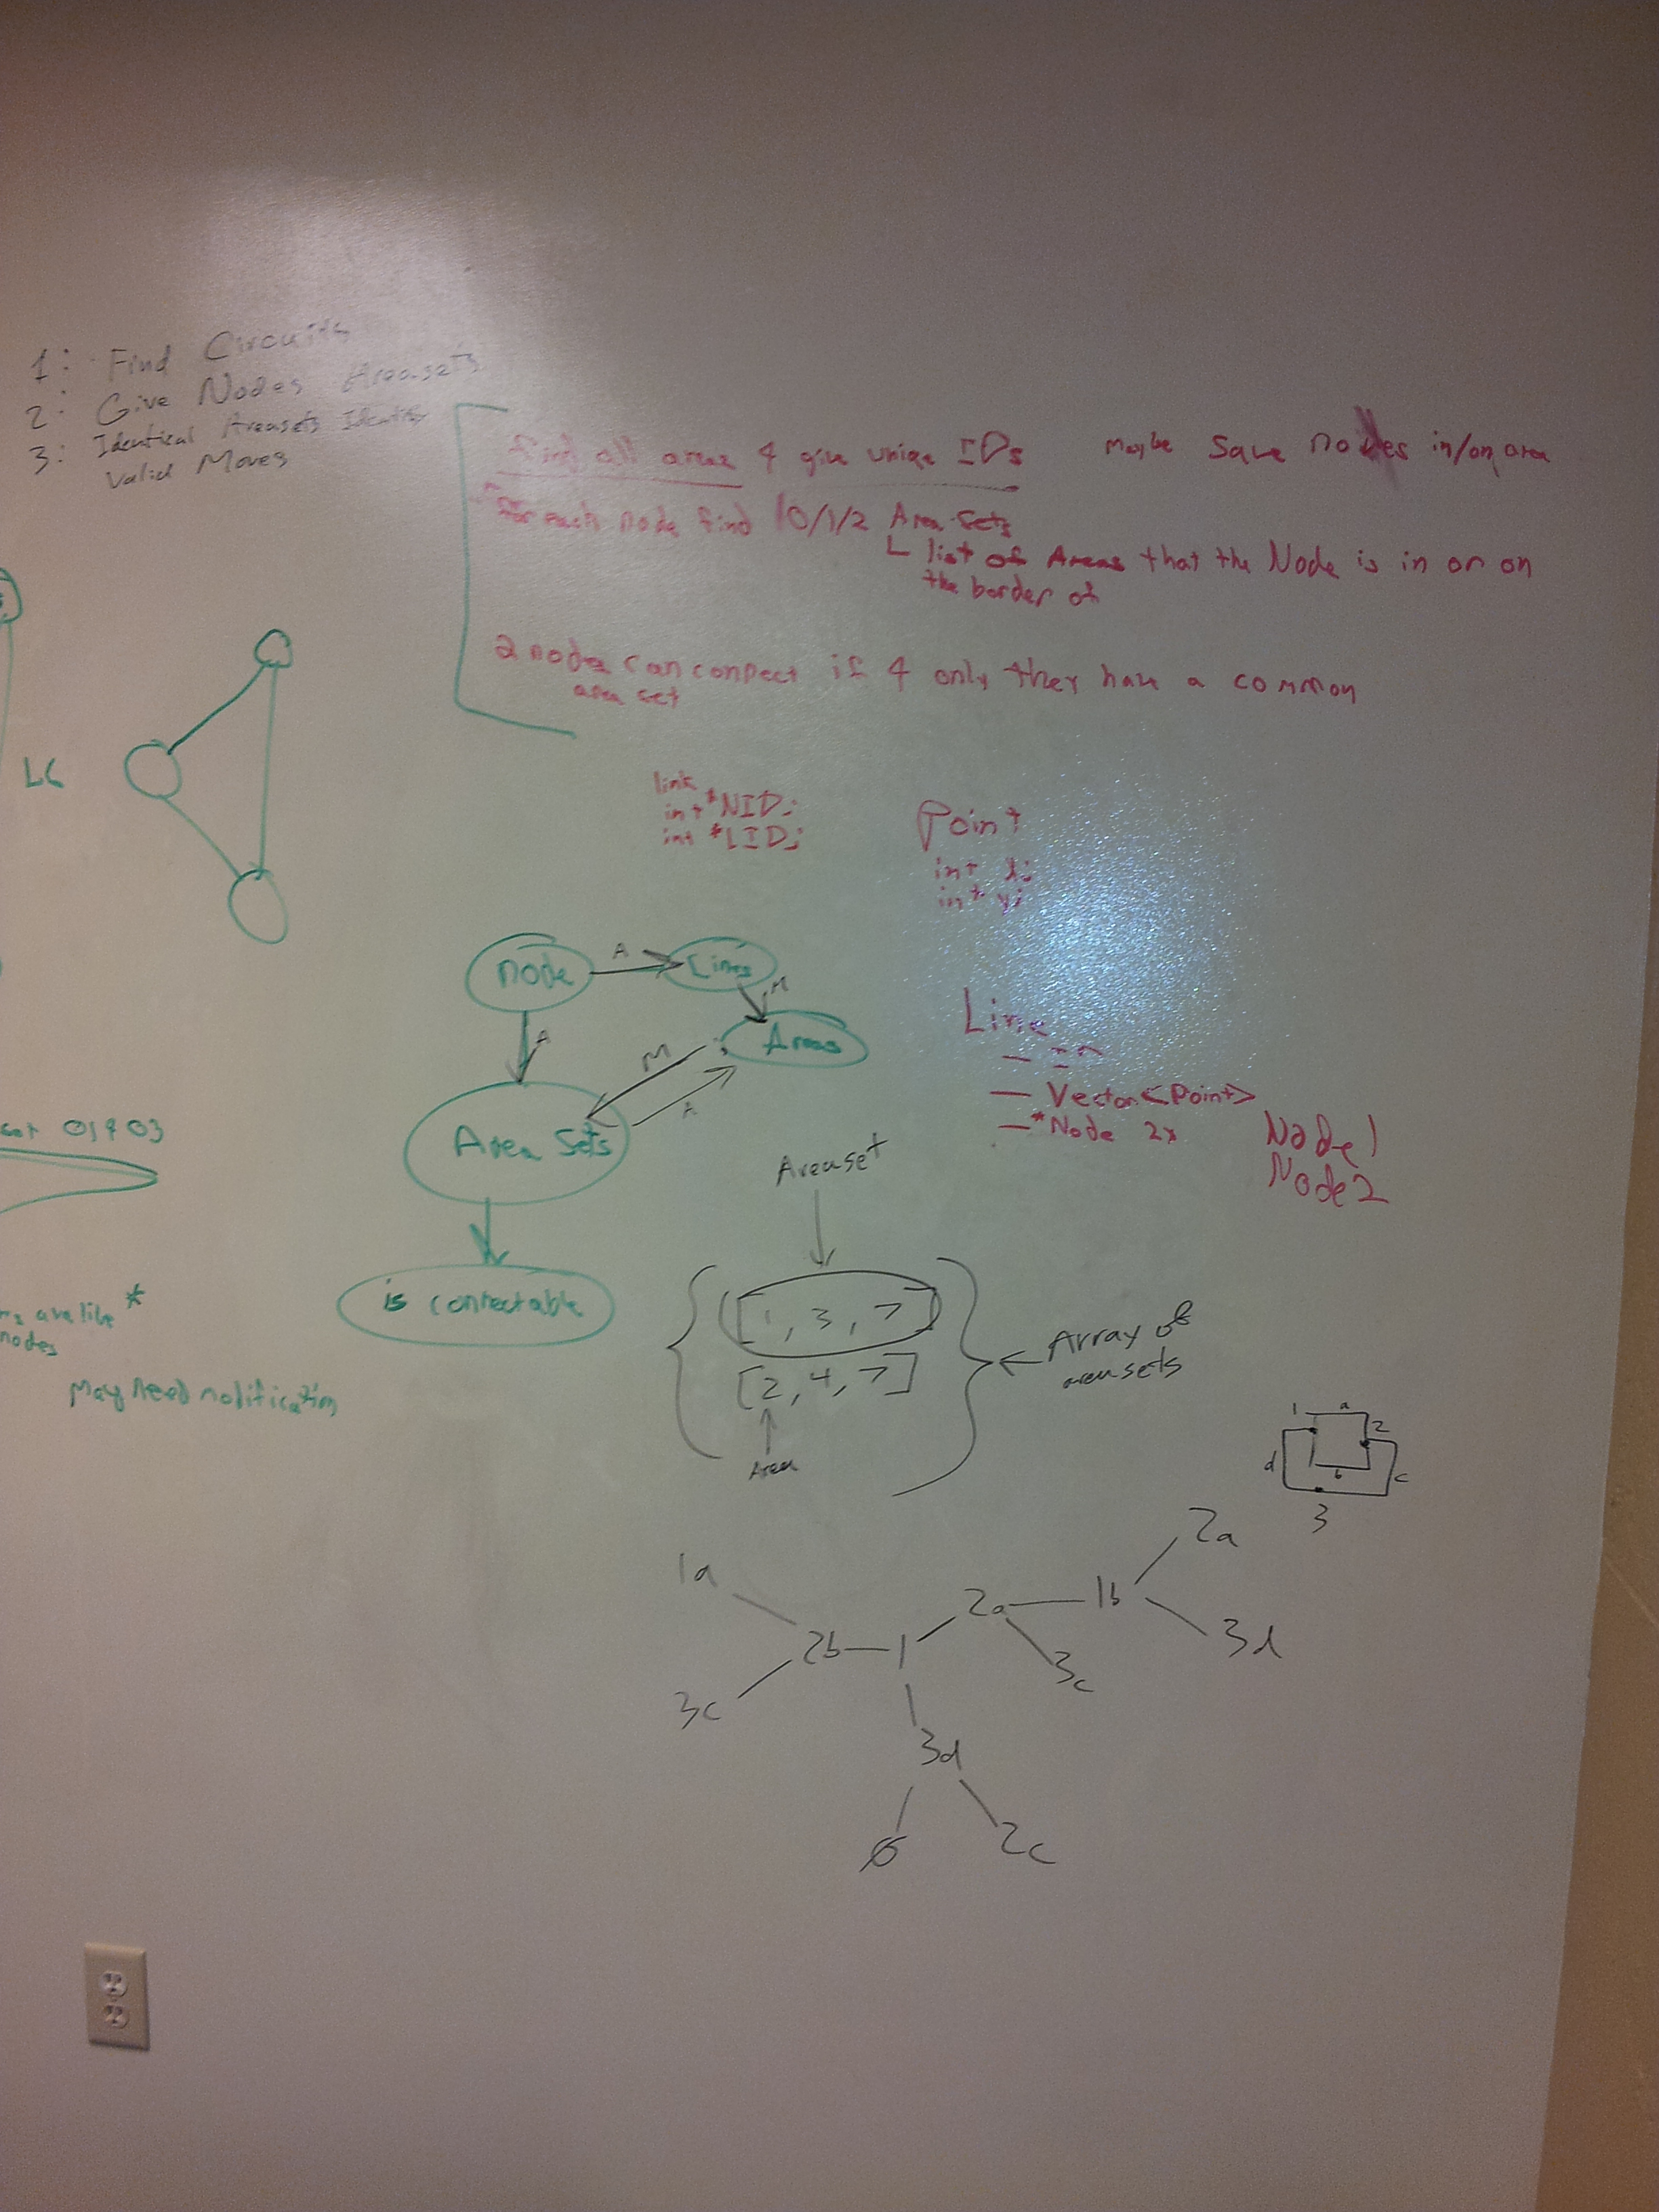 1: Find Circuits
2: Give Nodes Areasets
3: Identical Areasets Identify
Valid Moves
find all areas & give unique IDs
maybe save nodes in/on area
for each node find 0/1/2 Area Sets
list of Areas that the Node is in or on
the border of
2 node can connect if & only they have a common
area set
L6
link
int *NID;
int *LID;
Point
int x;
int y;
Node
A
Lines
M
Areas
A
M
A
Area Sets
is connectable
Line
— ID
— Vector<Point>
— *Node 2x
Node 1
Node 2
01403
are like *
nodes
May need modification
Areaset
[1, 3, 7]
[2, 4, 7]
Area
Array of
areasets
1
a
2
d
b
c
3
1a
2b
1
2a
1b
2a
3d
3c
3c
3d
2c